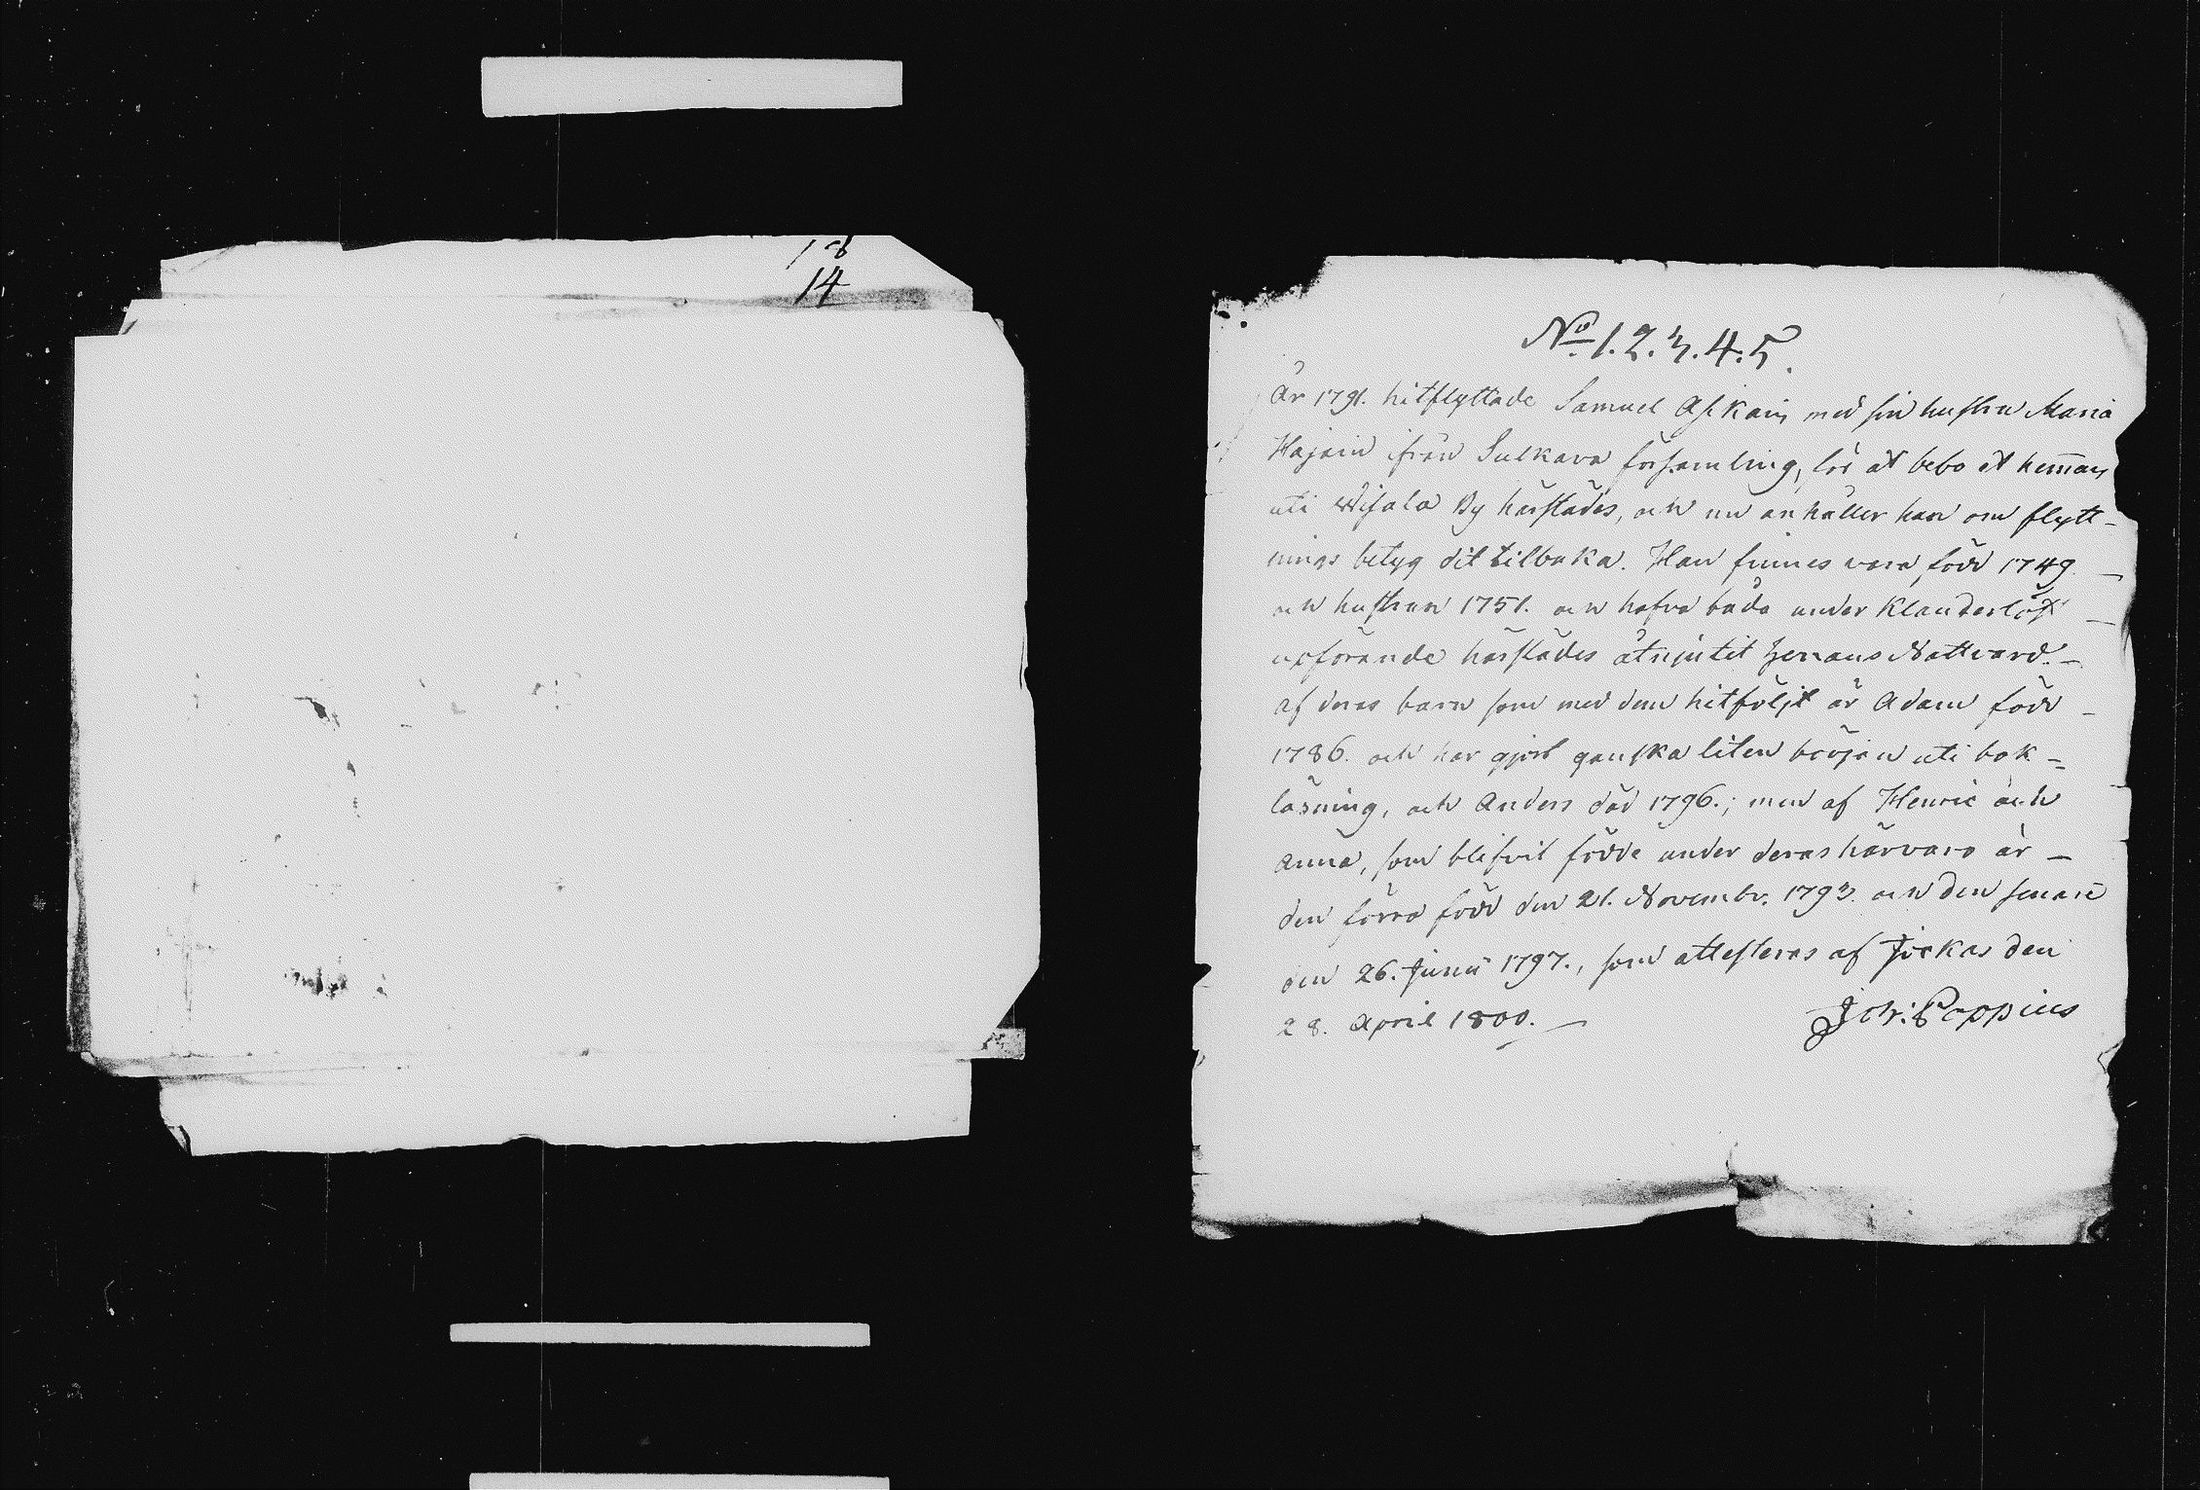 18
14
No 1. 2. 3. 4. 5.
År 1791. hitflyttade Samuel Askain med sin hustru Maria
Hajain ifrån Sulkava församling, för at bebo et hem̄an
uti Wisala By härstädes, och nu anhåller han om flytt-
nings betyg dit tilbaka. Han finnes vara född 1749 –
och hustrun 1751. och hafva båda under klanderlöst –
upförande härstädes åtnjutit Herrans Nattvard. –
af deras barn som med dem hitföljt är Adam född –
1786. och har gjort ganska liten början uti bok =
läsning, och Anders död 1796.; men af Henric och
Anna, som blifvit födde under deras härvaro är –
den förra född den 21. Novembr. 1793. och den senare
den 26. Junii 1797., som attesteras af Jockas den
28. April 1800. –
Joh: Poppius